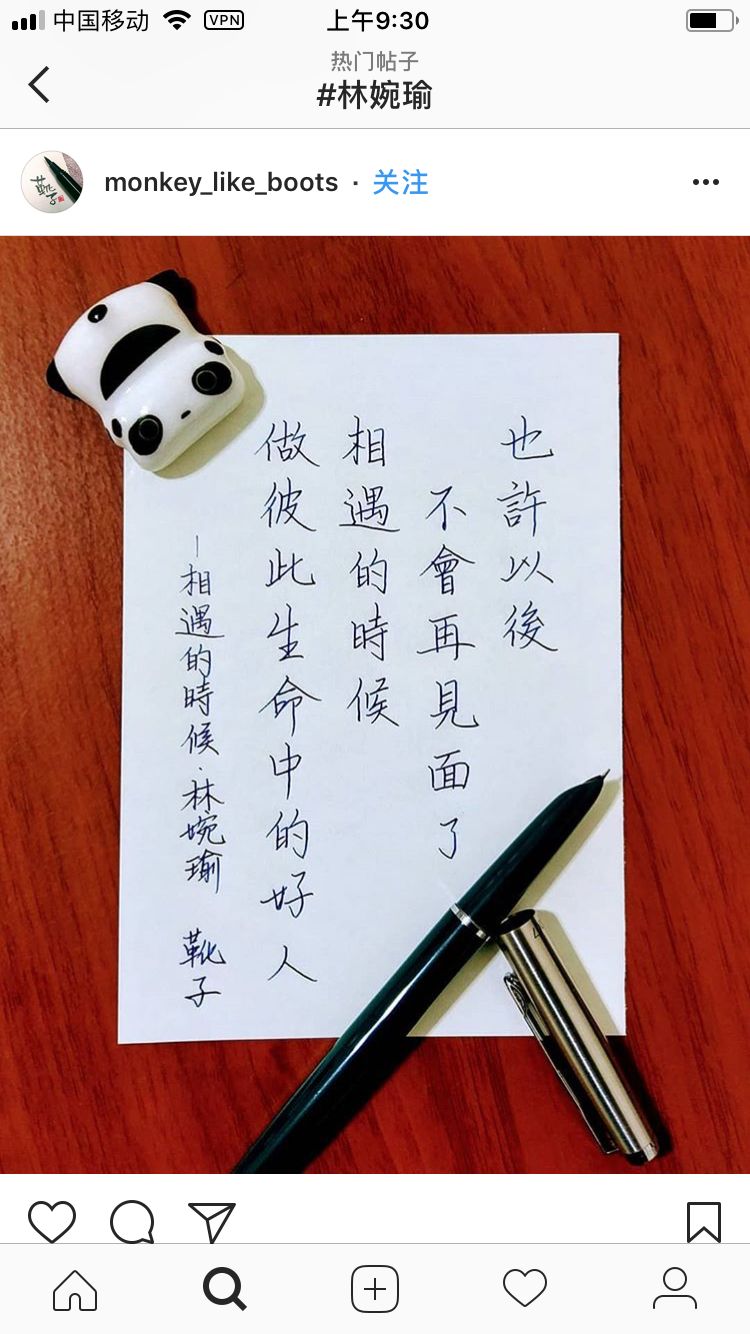 中国移动 VPN 上午9:30
热门帖子
#林婉瑜
monkey_like_boots · 关注
也許以後
不會再見面了
相遇的時候
做彼此生命中的好人
－相遇的時候·林婉瑜 靴子